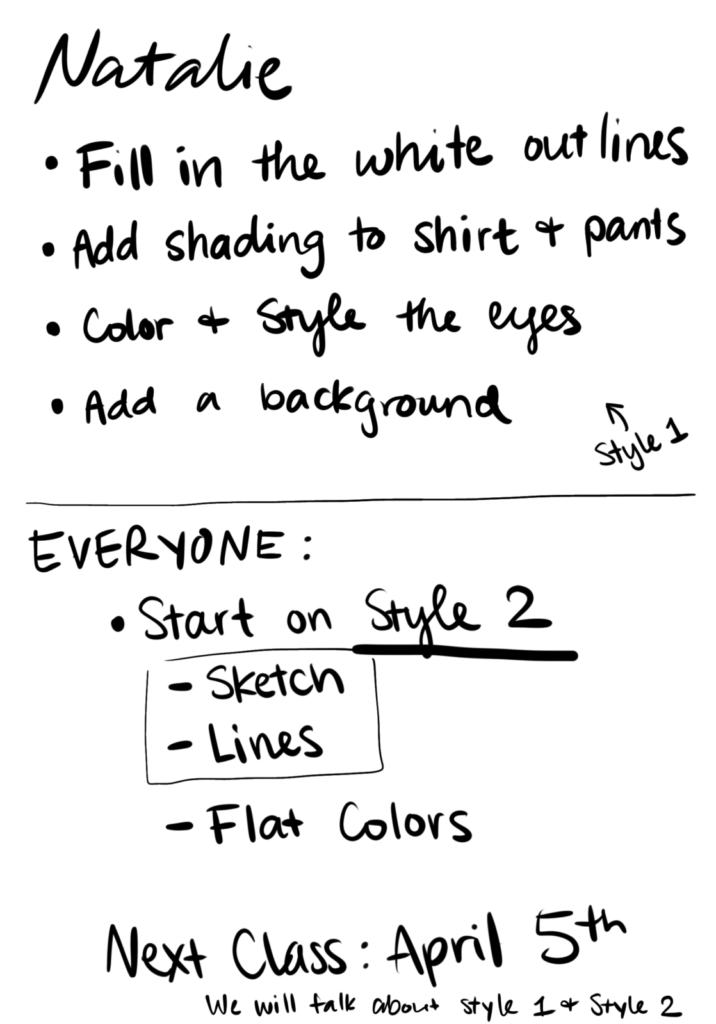 Natalie
• Fill in the white outlines
• Add shading to shirt + pants
• Color + Style the eyes
• Add a background
Style 1
EVERYONE:
• Start on Style 2
- Sketch
- Lines
- Flat Colors
Next Class: April 5th
We will talk about style 1 + Style 2